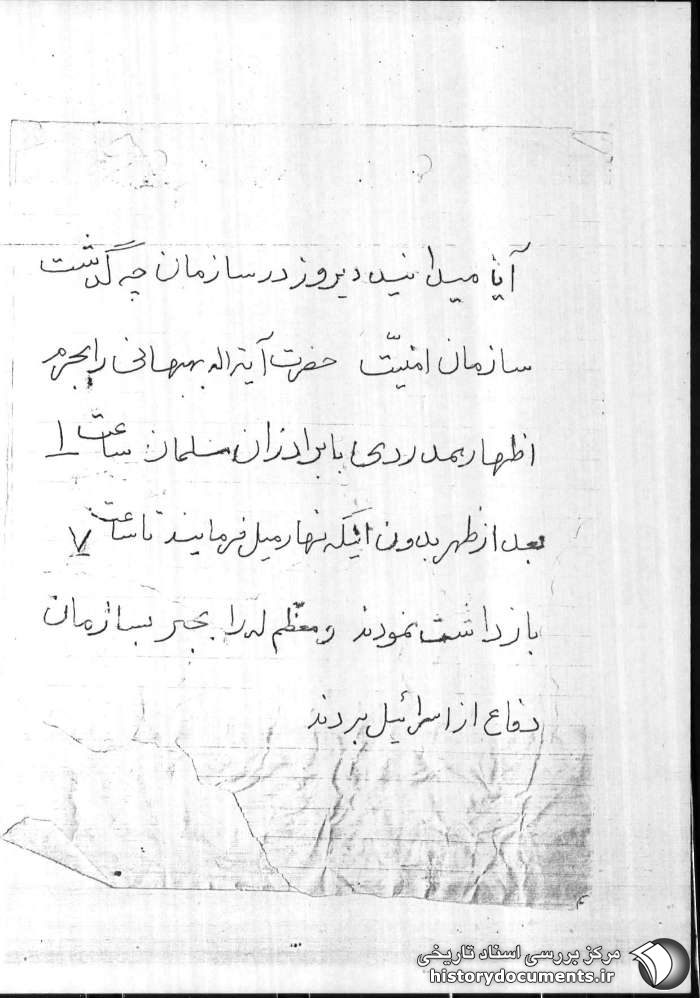 آیا میدانید دیروز در سازمان چه گذشت
سازمان امنیّت حضرت آیة اله بهبهانی را بجرم
اظهار همدردی با برادران مسلمان ساعت ۱
بعد از ظهر بدون اینکه نهار میل فرمایند تا ساعت ۷
بازداشت نمودند و معظّم له را بجبر بسازمان
دفاع از اسرائیل بردند
مرکز بررسی اسناد تاریخی
historydocuments.ir